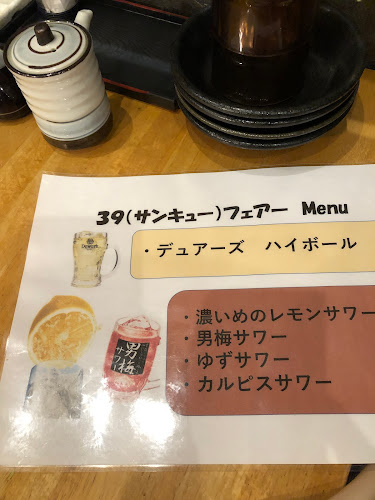 39(サンキュー)フェアー Menu
・デュアーズ ハイボール
・濃いめのレモンサワー
・男梅サワー
・ゆずサワー
・カルピスサワー
DEWAR'S
男梅
サワー